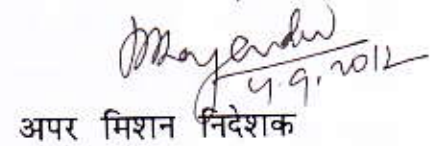 4.9.2012
अपर मिशन निदेशक